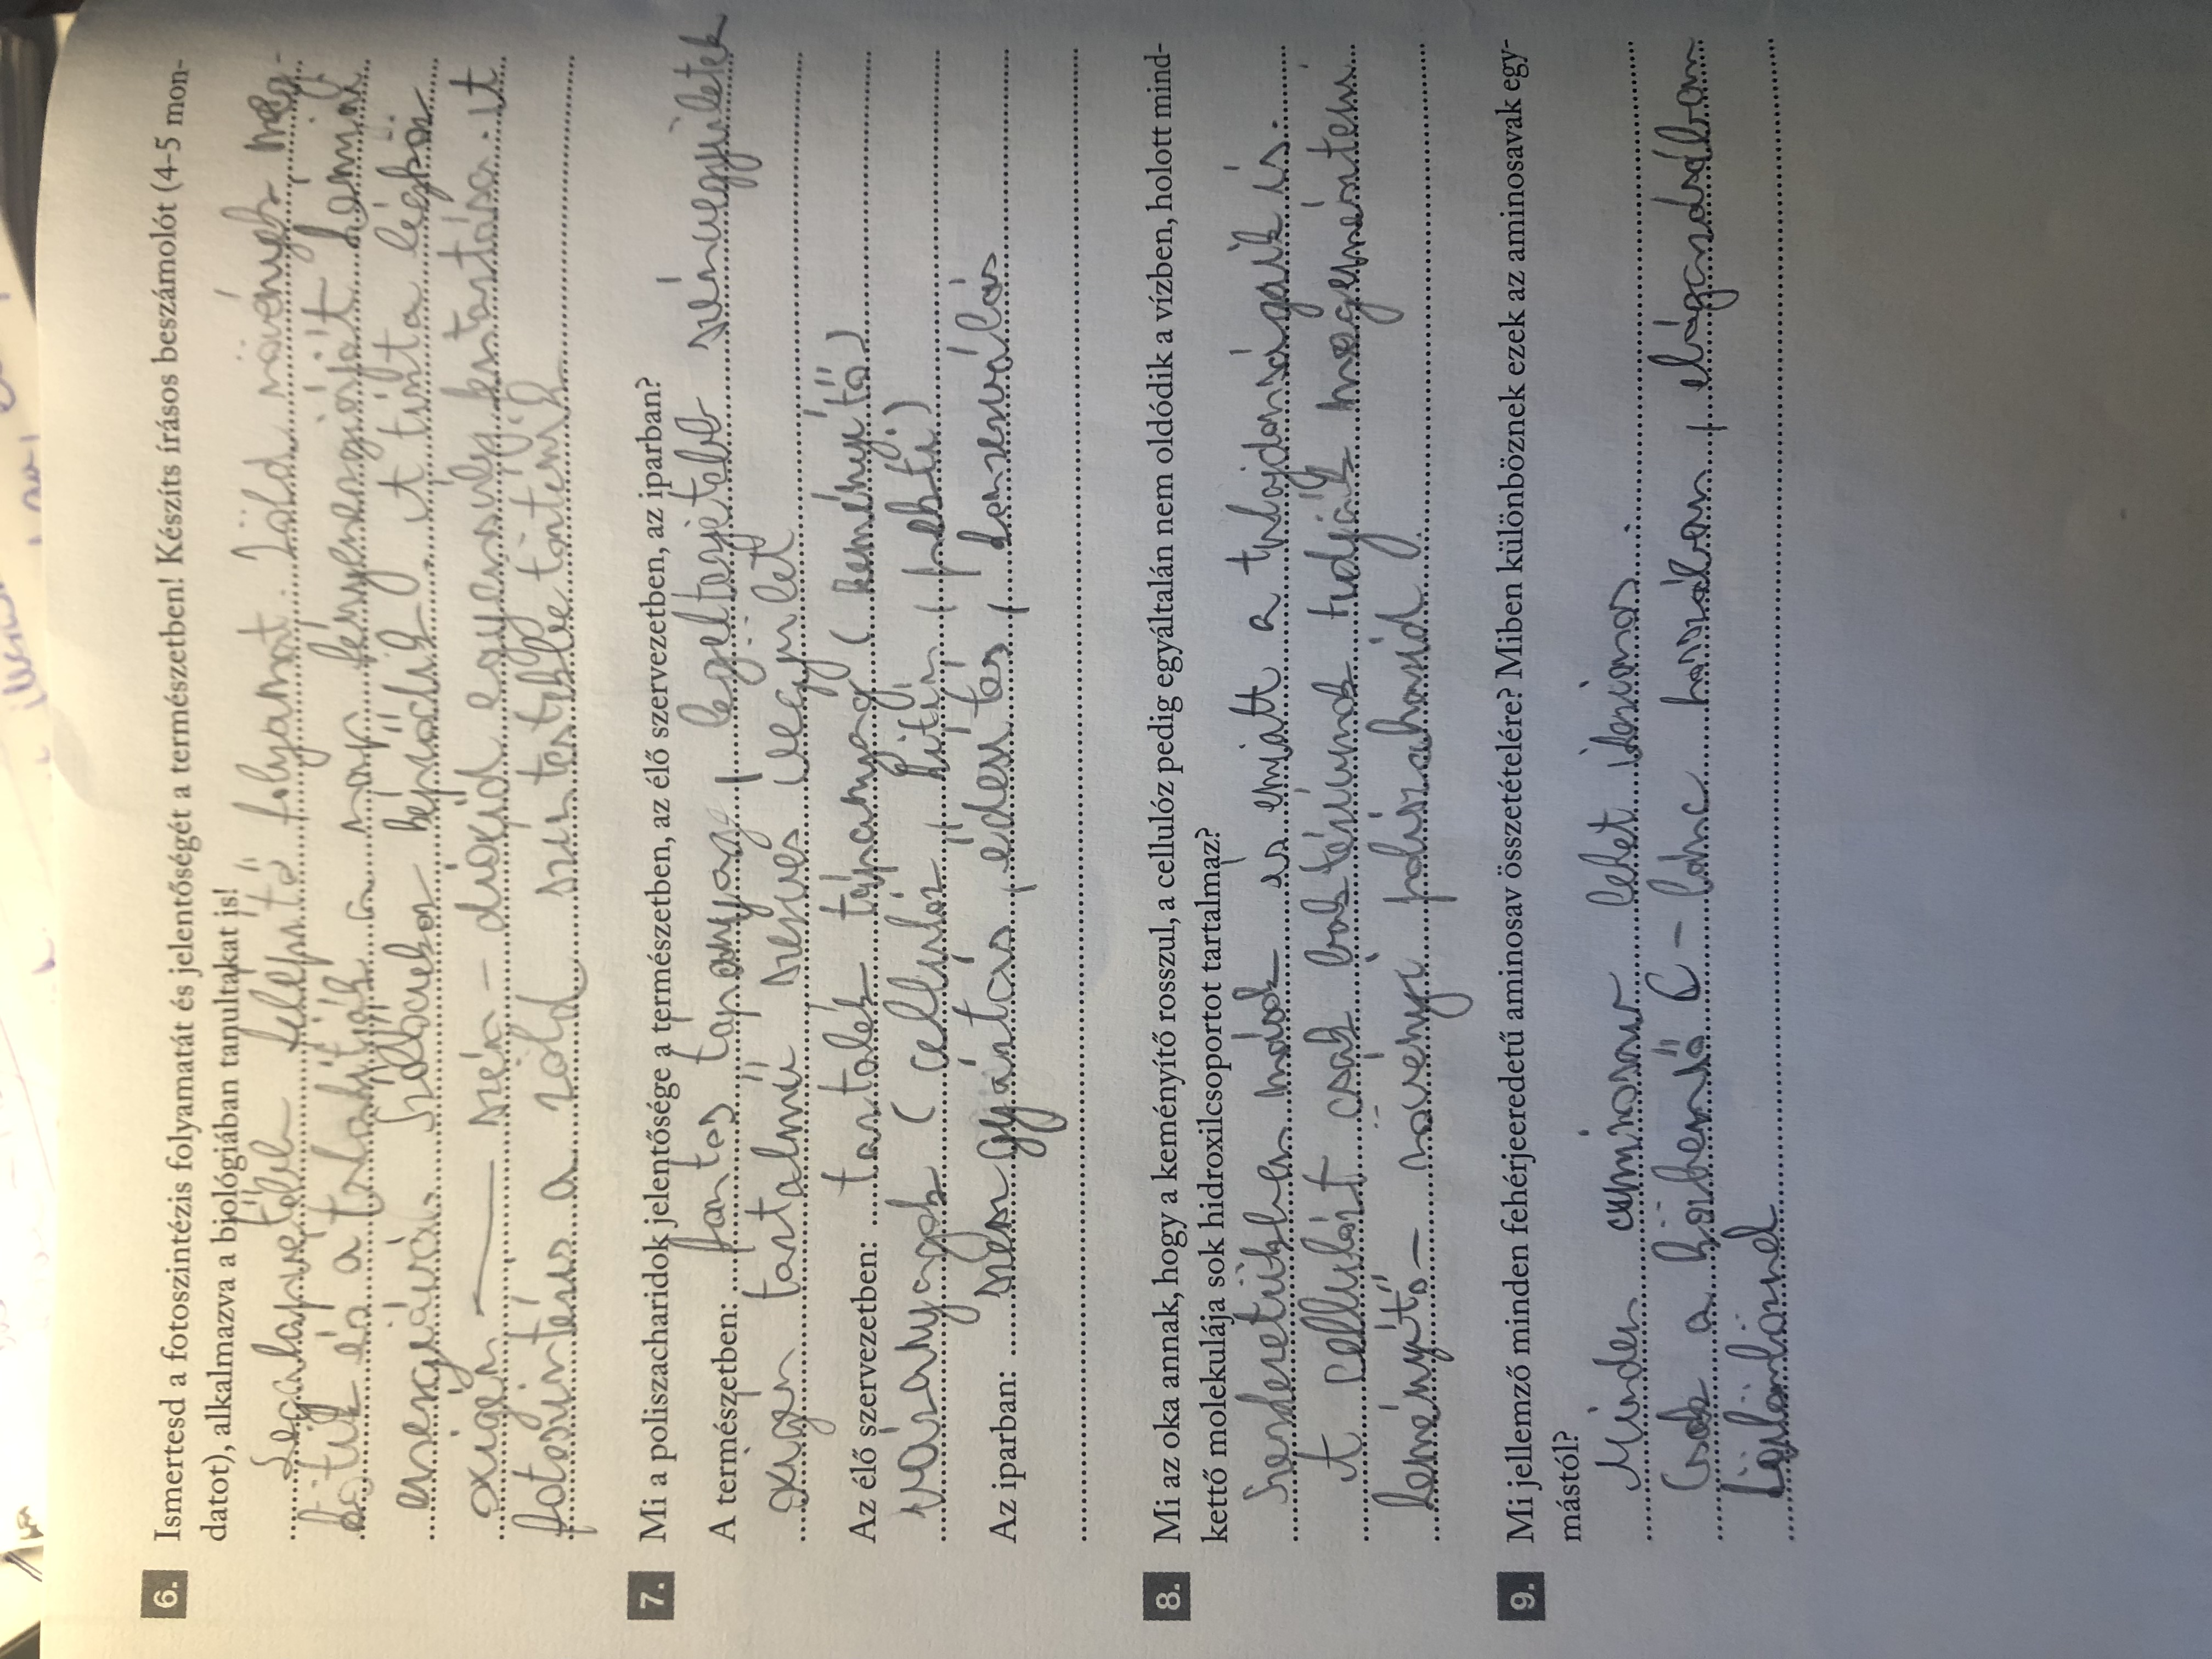 6. Ismertesd a fotoszintézis folyamatát és jelentőségét a természetben! Készíts írásos beszámolót (4-5 mon-
datot), alkalmazva a biológiában tanultakat is!
Legalapvetőbb felépítő folyamat. Zöld növények meg-
kötik és átalakítják a nap fényenergiáját kémiai
energiává. Szőlőcukor képződik, itt tint a légkör
oxigén - szén-dioxid egyensúly fentartása. Itt
fotoszintézis a zöld színtestekbe történik
7. Mi a poliszacharidok jelentősége a természetben, az élő szervezetben, az iparban?
A természetben: fontos tápanyag, legeltejetebb szénvegyületek
oxigen tartalmú szerves vegyület
Az élő szervezetben: tartalék tápanyag (keményítő)
vázanyagok (cellulóz, kitin, pektin)
Az iparban: szesz gyártás, édesítés, konzerválás
8. Mi az oka annak, hogy a keményítő rosszul, a cellulóz pedig egyáltalán nem oldódik a vízben, holott mind-
kettő molekulája sok hidroxilcsoportot tartalmaz?
Szerkezetükben mások és emiatt a tulajdonságaik is.
A cellulózt csak baktériumok tudják megemészteni
keményítő - növényi poliszaharid
9. Mi jellemző minden fehérjeeredetű aminosav összetételére? Miben különböznek ezek az aminosavak egy-
mástól?
Minden aminosav lehet ikerionos.
Csak a közbenső C-lánc hosszában, elágazásában
különböznek